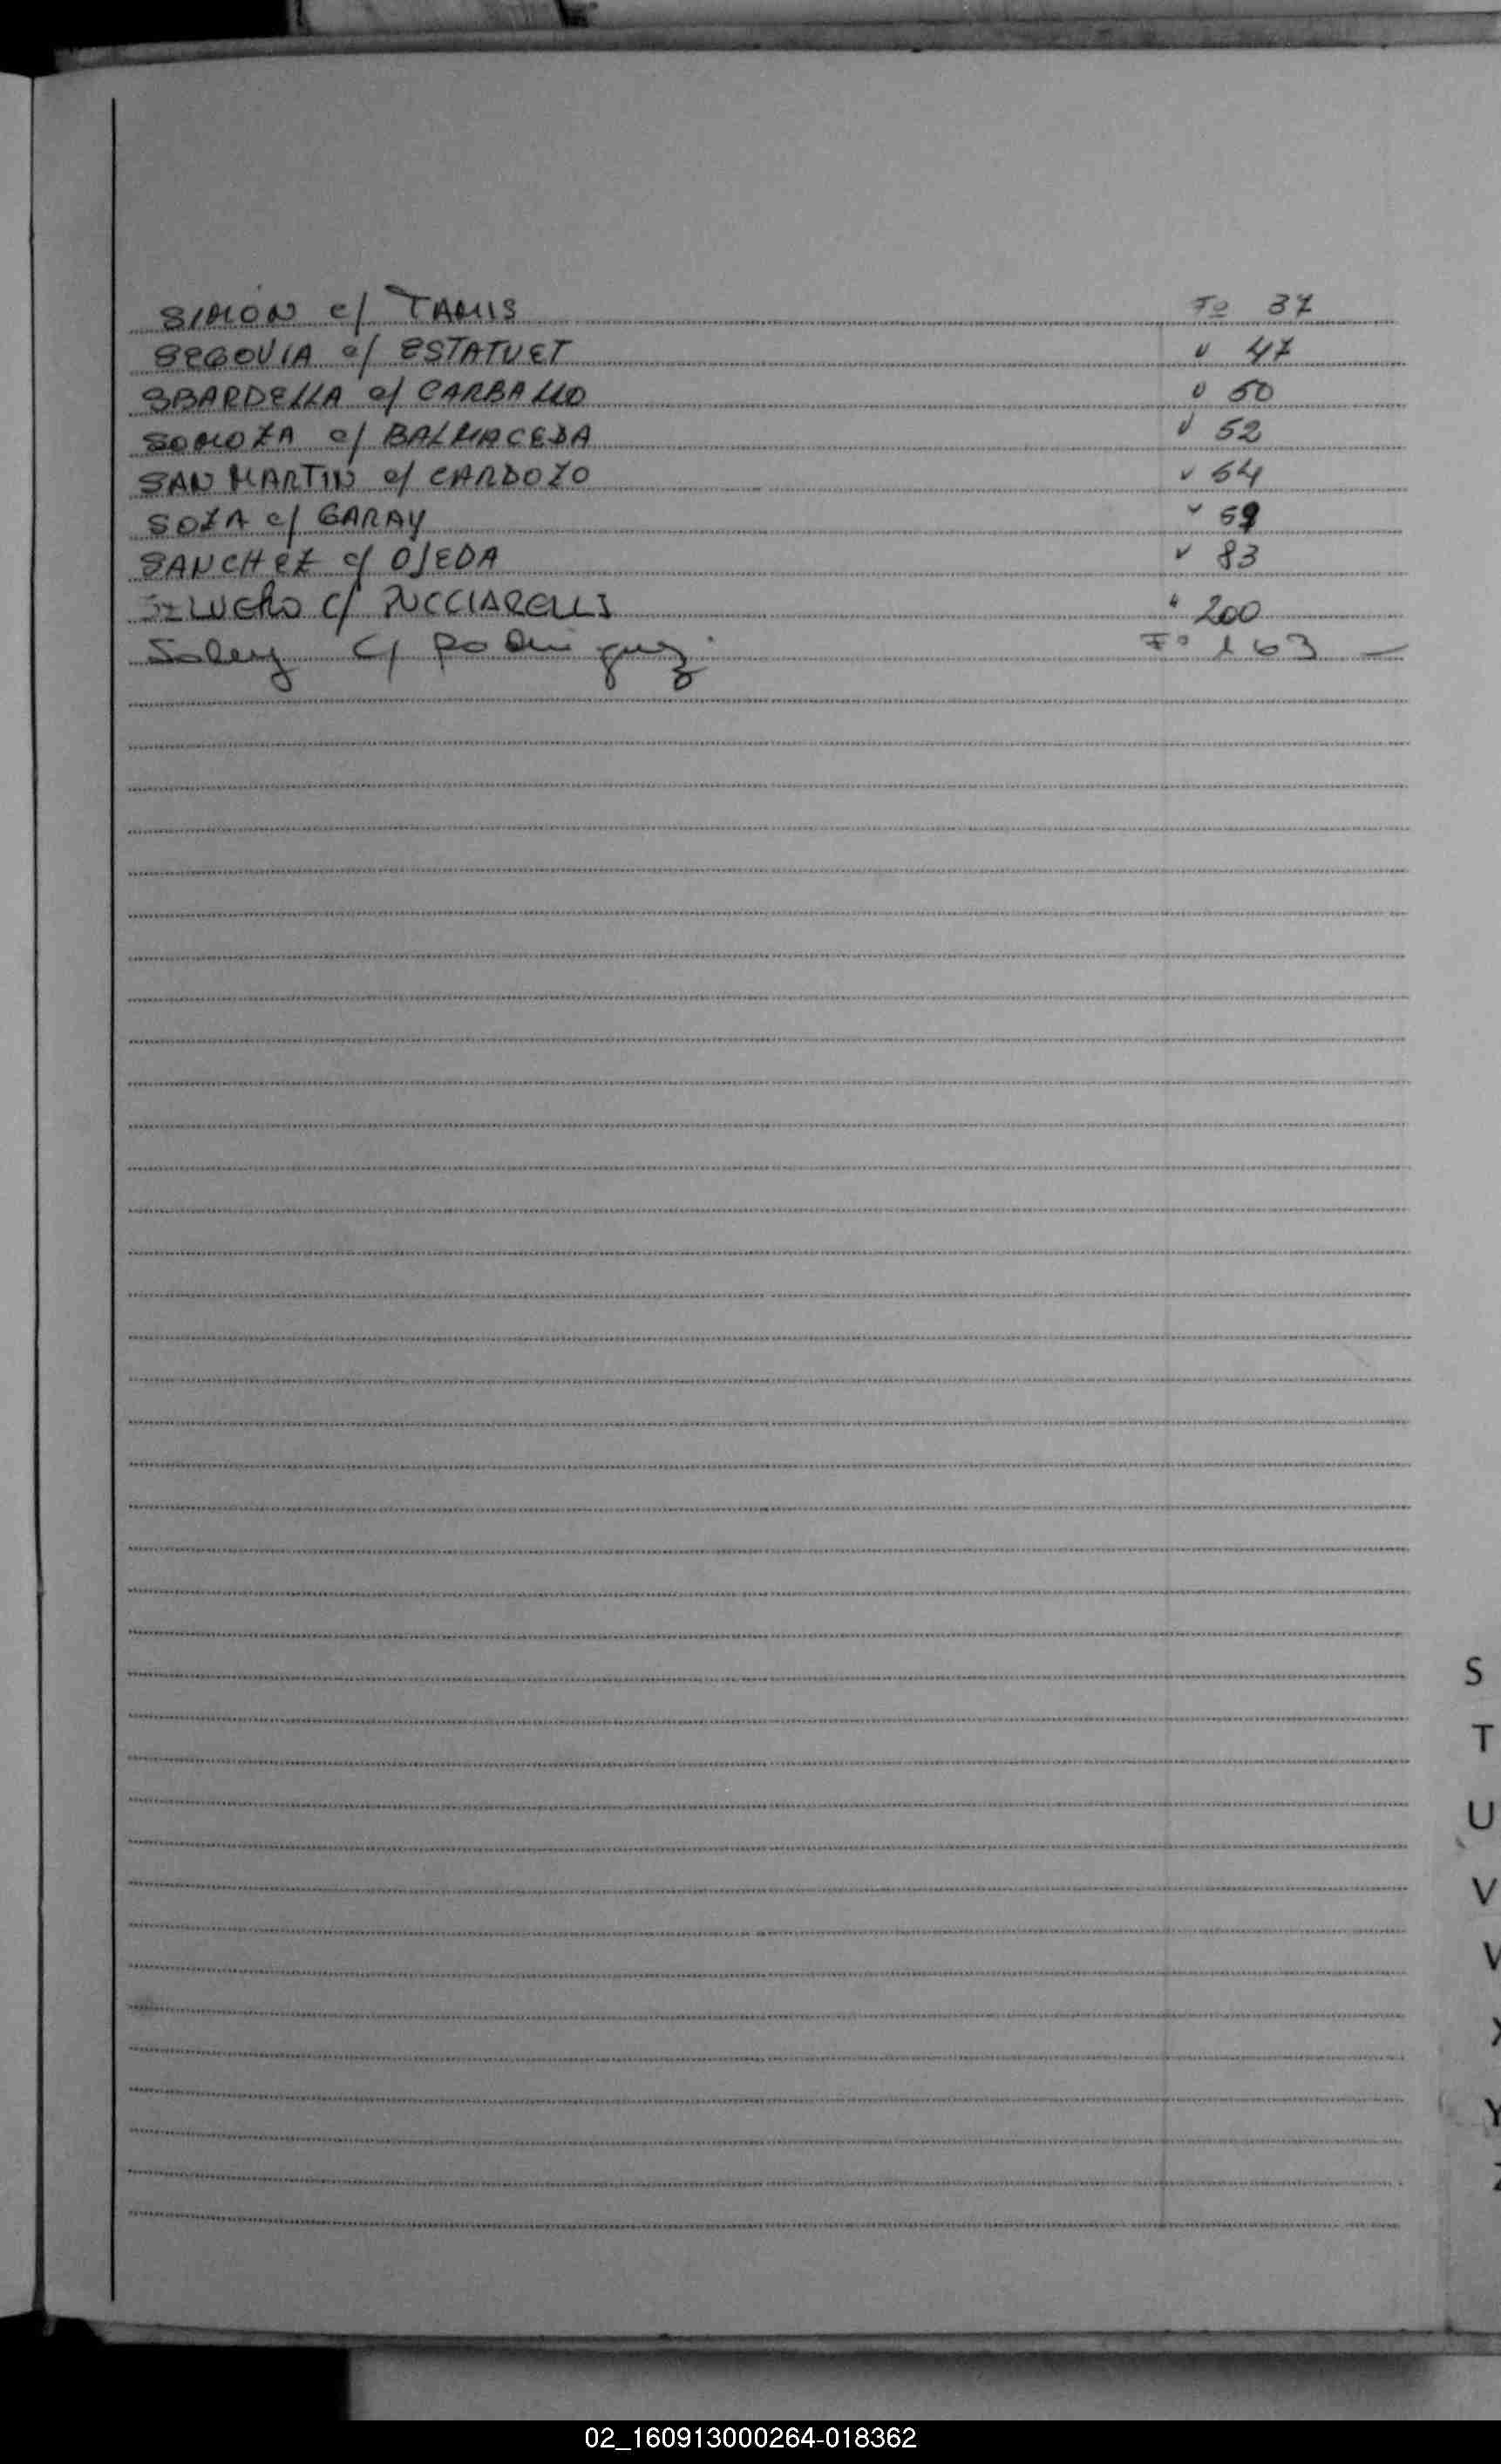 SIMON c/ TAMIS Fº 37
SEGOVIA c/ ESTATUET " 47
SBARDELLA c/ CARBALLO " 50
SOMOZA c/ BALMACEDA " 52
SAN MARTIN c/ CARDOZO " 54
SOZA c/ GARAY " 59
SANCHEZ c/ OJEDA " 83
c/ PUCCIARELLI " 200
c/ Rodriguez. Fº 163 —
S
T
U
V
Y
02_160913000264-018362